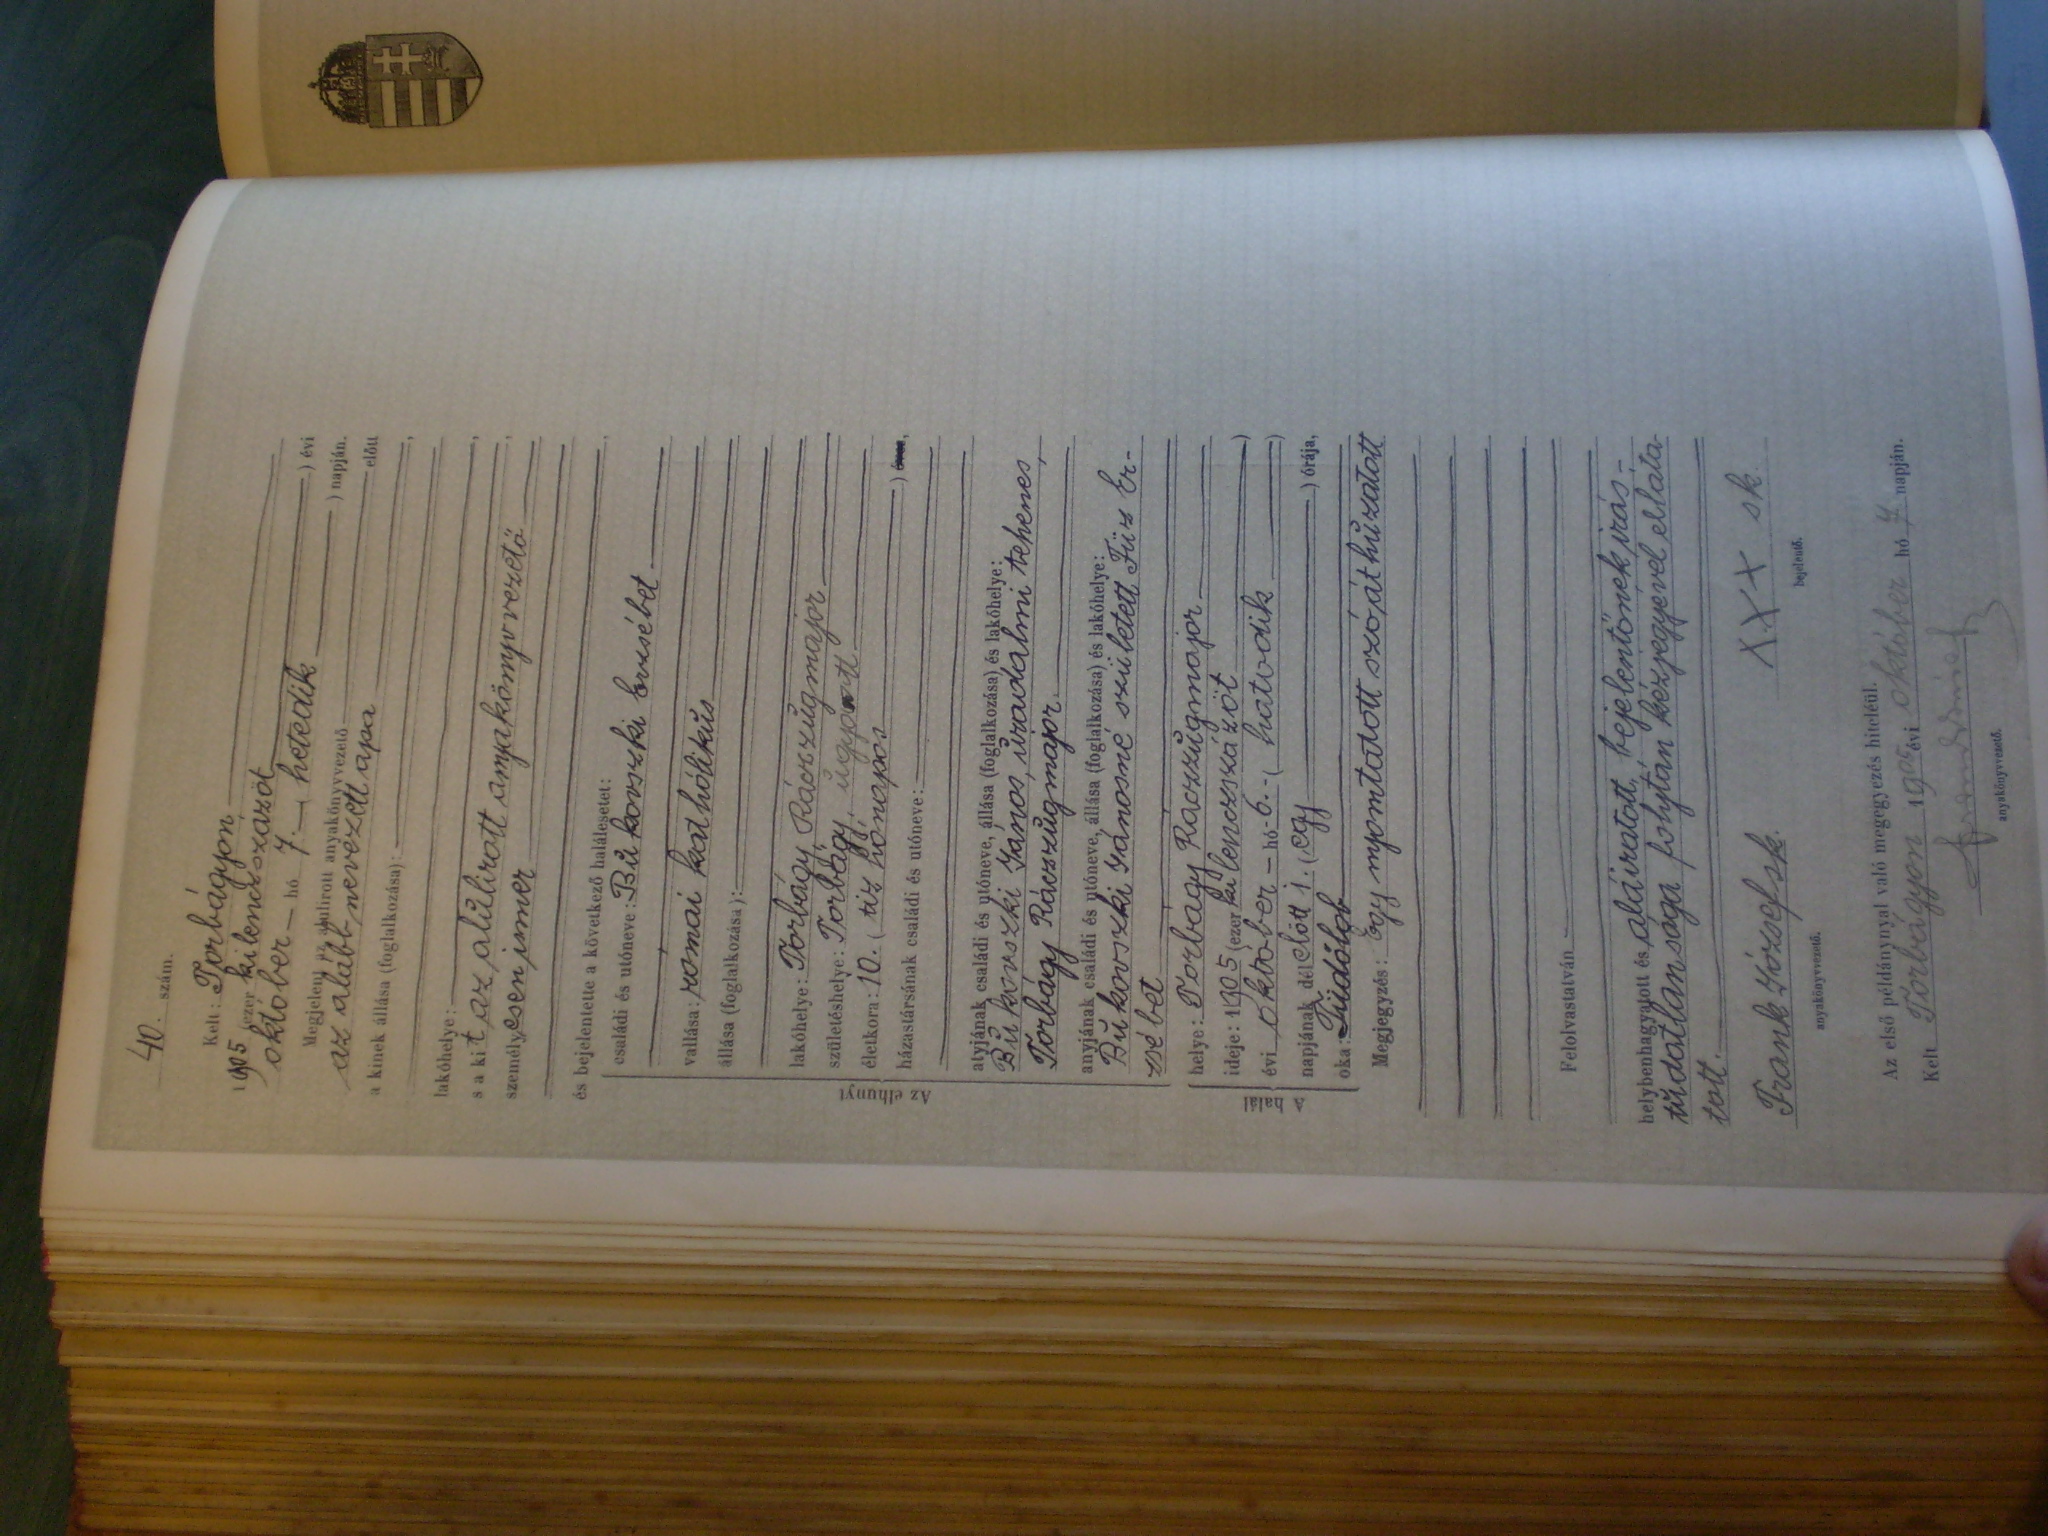 40. szám.
Kelt: Torbágyon,
1905 (ezer kilenczszázöt
) évi
október — hó 7. — ( hetedik
) napján.
Megjelent az alulirott anyakönyvvezető
előtt
az alább nevezett apa
a kinek állása (foglalkozása):
,
lakóhelye:
,
s a kit az alulirott anyakönyvvezető
,
személyesen ismer
és bejelentette a következő halálesetet:
Az elhunyt
családi és utóneve: Bukovszki Erzsébet
,
vallása: római katholikus
állása (foglalkozása):
lakóhelye: Torbágy Ráczzúgmajor
születéshelye: Torbágy, ugyanott
életkora: 10. ( tiz hónapos
) éves,
házastársának családi és utóneve:
atyjának családi és utóneve, állása (foglalkozása) és lakóhelye:
Bukovszki János, uradalmi tehenes,
Torbágy Ráczzúgmajor.
anyjának családi és utóneve, állása (foglalkozása) és lakóhelye:
Bukovszki Jánosné született Füz Er-
zsébet
A halál
helye: Torbágy Ráczzúgmajor
ideje: 1905 (ezer kilenczszázöt
)
évi október — hó 6. - ( hatodik
)
napjának délelőtt 1. ( egy
) órája,
oka: Tüdőlob
Megjegyzés: Egy nyomtatott szó áthúzatott
Felolvastatván
helybenhagyatott és aláiratott, bejelentőnek irás-
tudatlansága folytán kézjegyével elláta-
tott.
Frank József sk.
XXX sk.
anyakönyvvezető.
bejelentő.
Az első példánynyal való megegyezés hiteléül.
Kelt Torbágyon 1905 évi október hó 7 napján.
anyakönyvvezető.